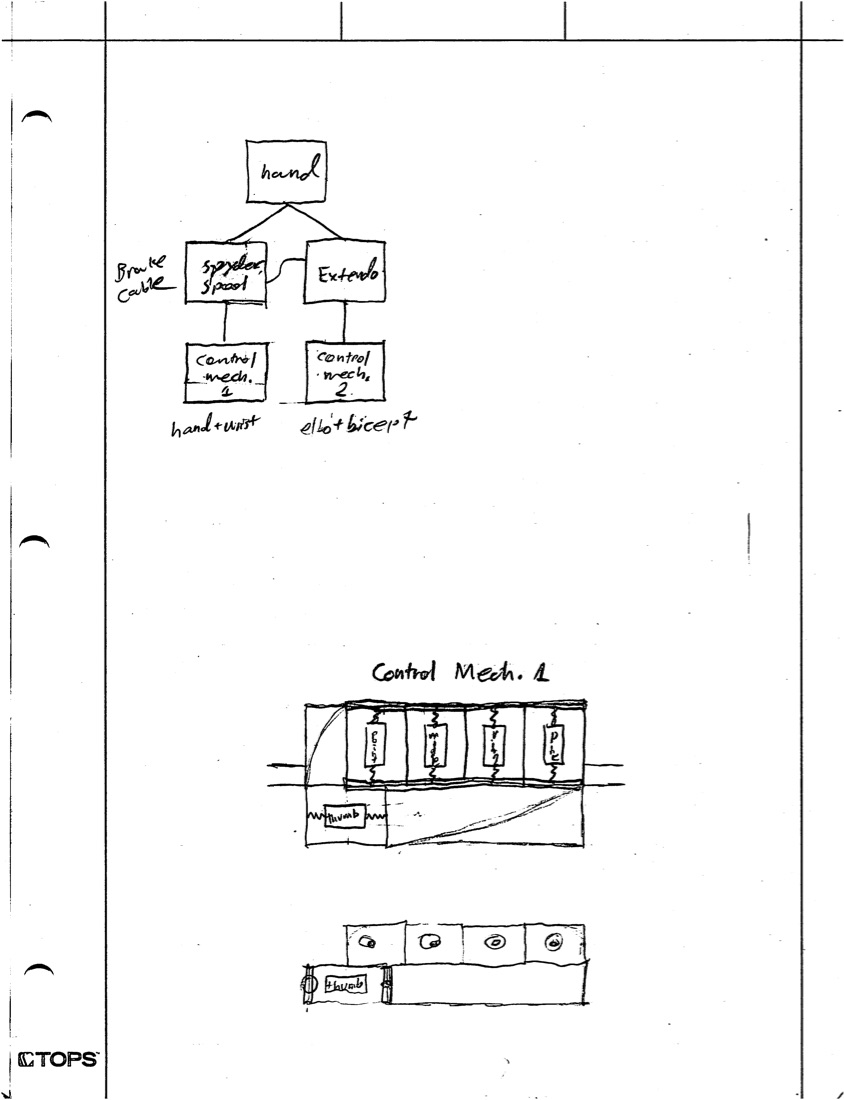 hand
Brake
Cable
spyder
spool
Extendo
control
mech.
1
control
mech.
2
hand + wrist
elbo + bicept
Control Mech. 1
midd
thumb
thumb
TOPS